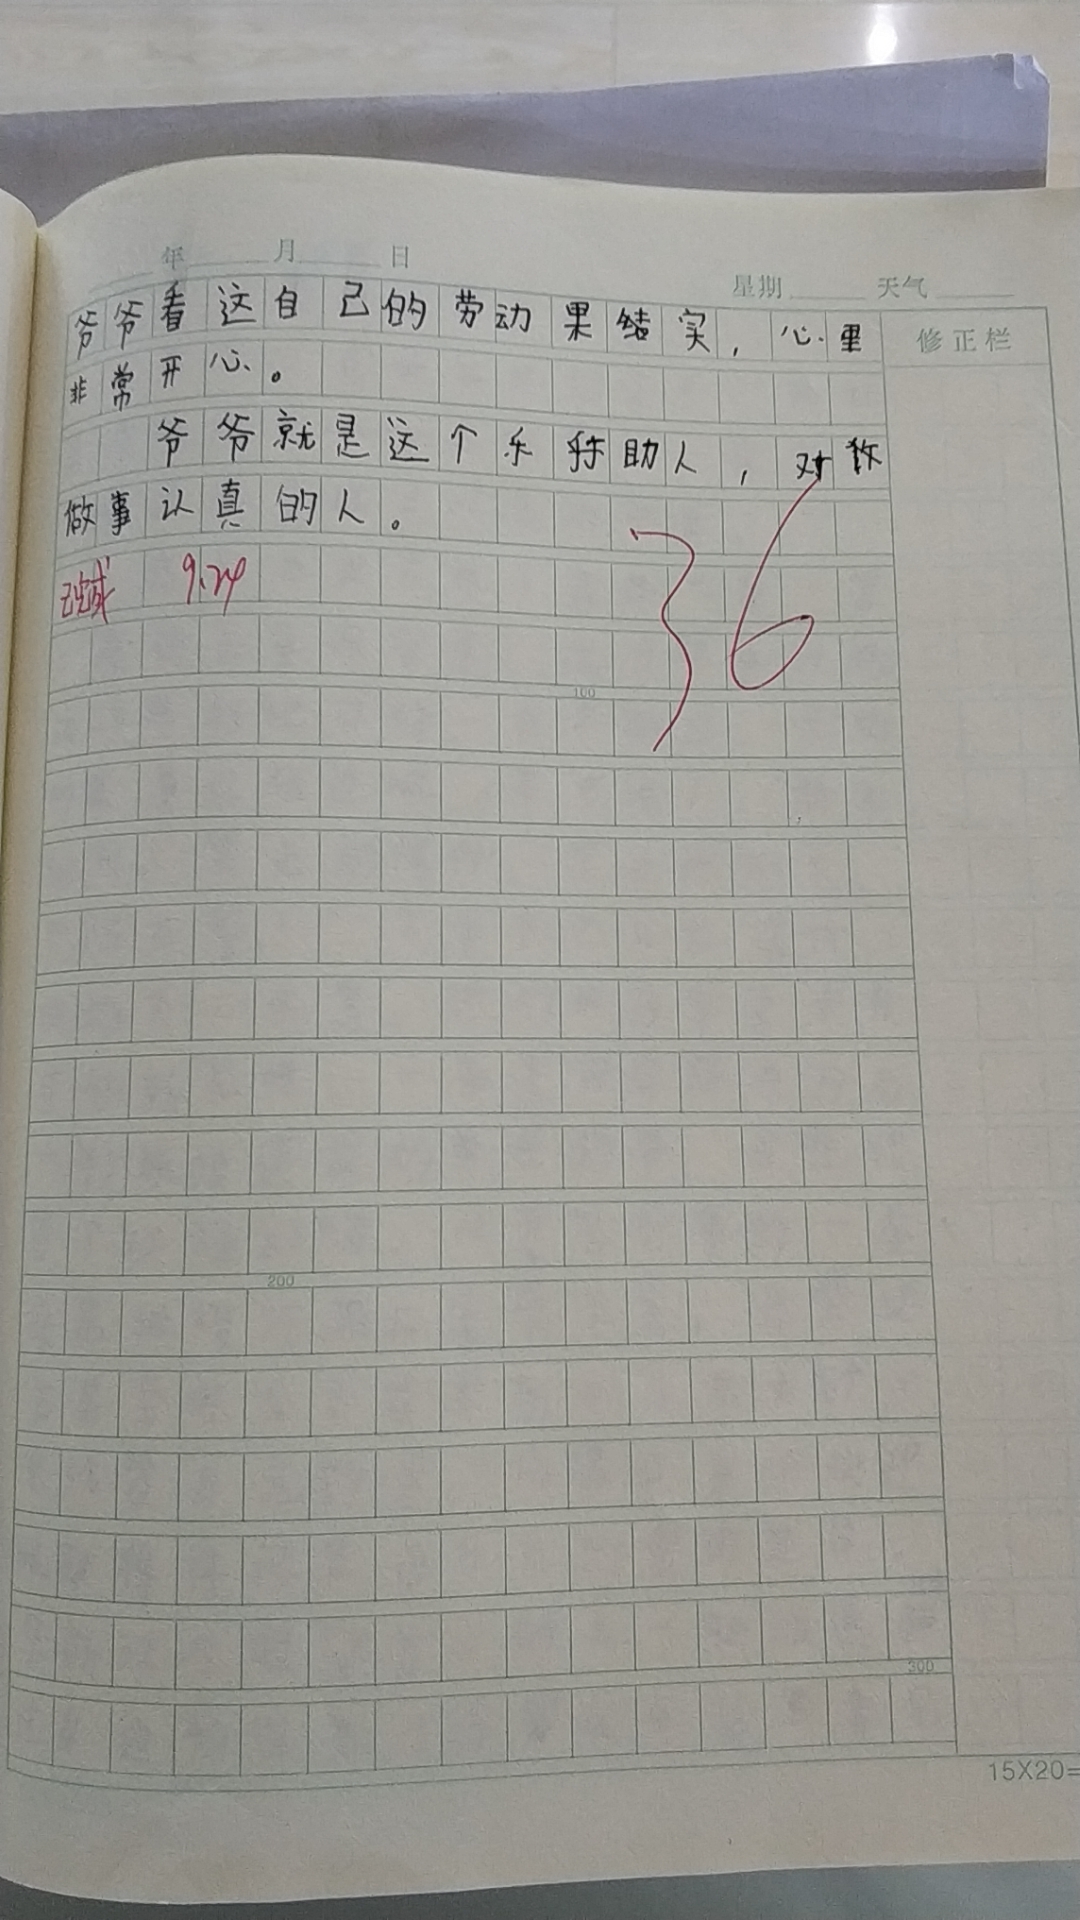 年 月 日
星期 天气
爷爷看这自己的劳动果结实，心里
修正栏
非常开心。
爷爷就是这个乐称助人，对敎
做事认真的人。
9.24
36
100
200
300
15X20=